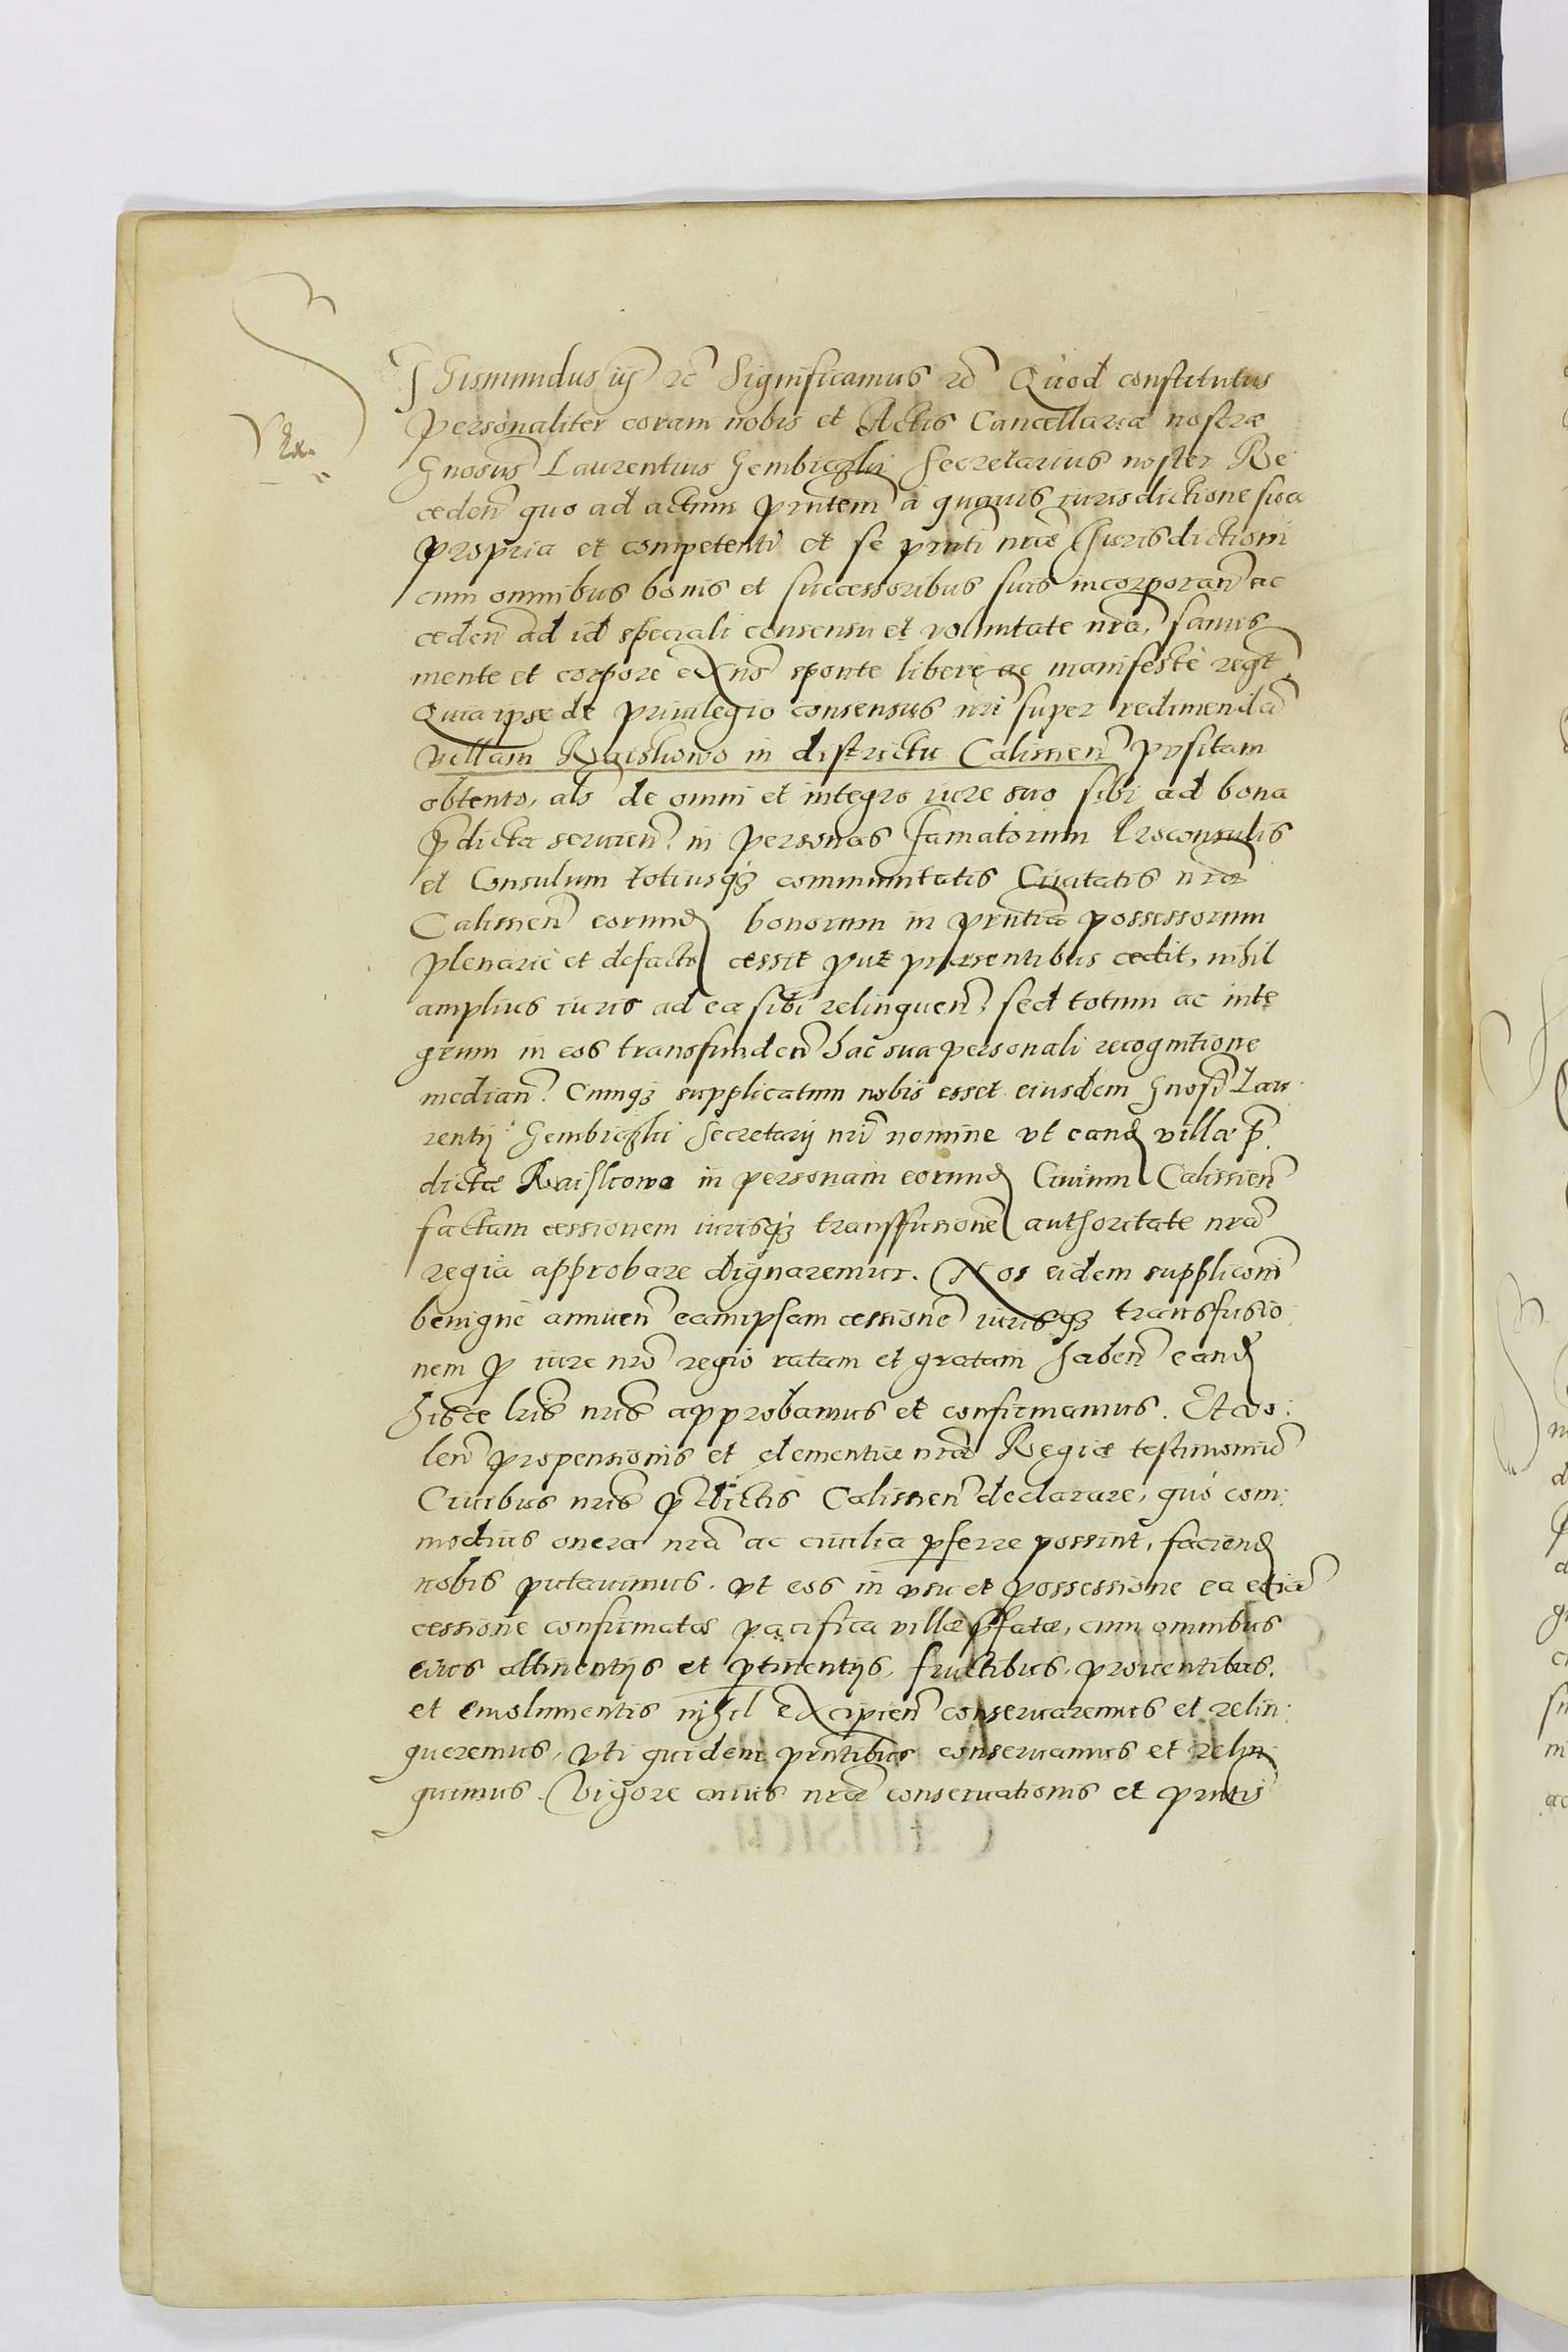 Sigismundus iij etc Significamus etc Quod constitutus
personaliter coram nobis et Actis Cancellariæ nostræ
Gnosus Laurentius Gembiczki Secretarius noster Re
ceden̄ quo ad actum pn̄tem à quauis iurisdictione sua
propria et competenti et se pn̄ti nr̄æ Iurisdictioni
cum omnibus bonis et successoribus suis incorporan̄ ac
ceden̄ ad id speciali consensu et voluntate nr̄a, sanus
mente et corpore exn̄s sponte liberè ac manifestè regt
Quia ipse de priuilegio consensus nr̄i super redimendā
villam Raiskowo in districtu Calissien̄ positam
obtento, als de omni et integro iure suo sibi ad bona
p̄dicta seruien̄. in personas famatorum Proconsulis
et Consulum totiusq; communitatis Ciuitatis nr̄æ
Calissien̄ eorund bonorum in pn̄tiā possessorum
plenariè et defacto cessit put præsentibus cedit, nihil
amplius iuris ad ea sibi relinquen̄, sed totum ac inte
grum in eos transfunden̄ hac sua personali recognitione
median̄. Cumq; supplicatum nobis esset eiusdem Gnosi Lau
rentij Gembiczki Secretarij nr̄i nomine vt eand villæ p̄
dictæ Raiskowo in personam eorund Ciuium Calissien̄
factam cessionem iurisq; transffusionē authoritate nr̄a
regia approbare dignaremur. Nos eidem supplicōni
benignè annuen̄ eamipsam cessionē iurisq; transfusio
nem p iure nr̄o regio ratam et gratam haben̄ eand
hisce lr̄is nr̄is approbamus et confirmamus. Et vo:
len̄ propensionis et clementiæ nr̄æ Regiæ testimoniū
Ciuibus nr̄is p̄dictis Calissien̄ declarare, quò com:
modius onera nr̄a ac ciuilia pferre possint, faciend
nobis putauimus. vt eos in vsu et possessione ea etiā
cessione confirmatos pacifica villæ p̄fatæ, cum omnibus
eius attinentijs et ptinentijs, fructibus, prouentibus.
et emolumentis nihil excipien̄ conseruaremus et relin:
queremus, vti quidem pn̄tibus conseruamus et relin
quimus. Vigore cuius nr̄æ conseruationis et pn̄tis